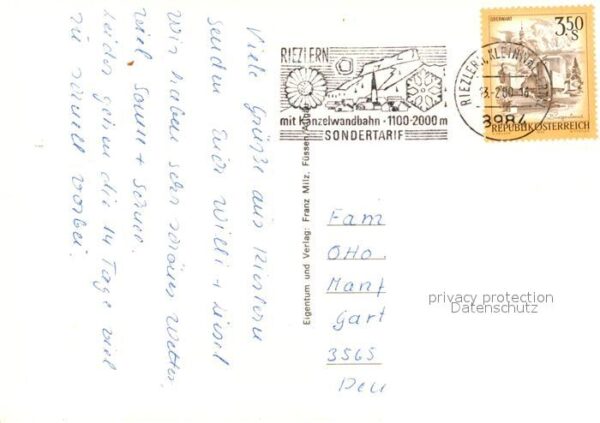 Viele Grüße aus Riezlern
senden Euch Willi + Liesel
Wir haben sehr schönes Wetter,
viel Sonne + Schnee.
Leider gehen die 14 Tage viel
zu schnell vorbei.
RIEZLERN
mit Kanzelwandbahn · 1100-2000 m
SONDERTARIF
3984
3.50
S
REPUBLIK ÖSTERREICH
Eigentum und Verlag: Franz Milz, Füssen/Allgäu
Fam
Otto
Manf
Gart
3565
Deu
privacy protection
Datenschutz